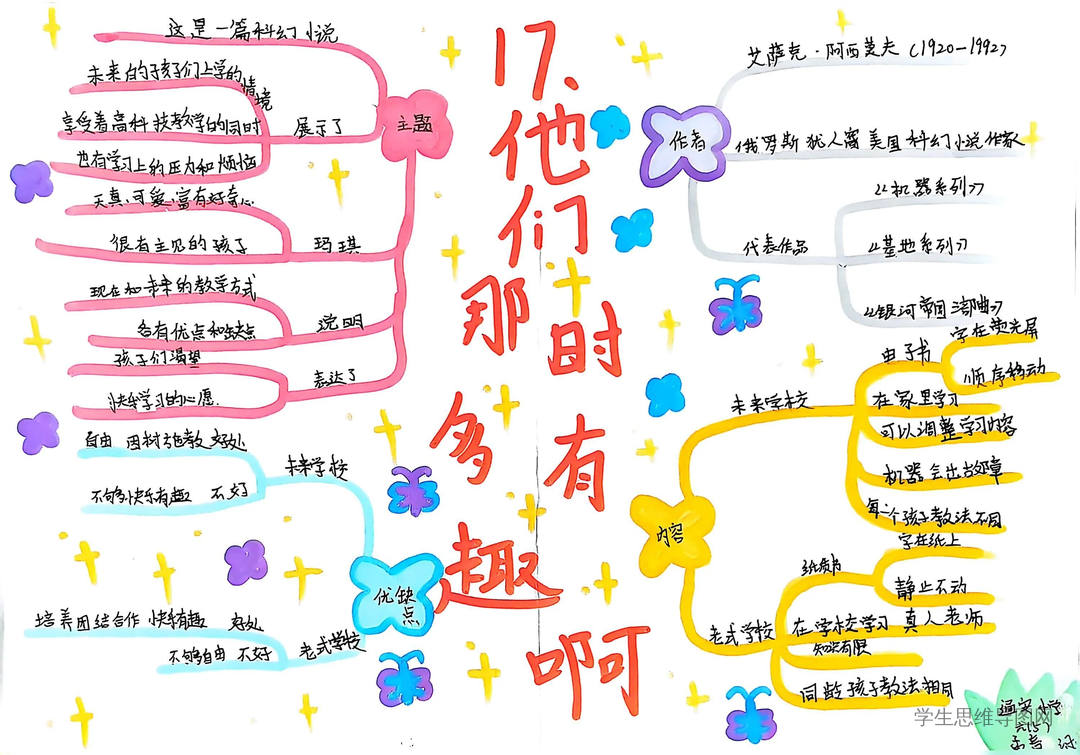 17、他们那时多有趣啊
作者
艾萨克·阿西莫夫(1920-1992)
俄罗斯犹人裔美国科幻小说作家
代表作品
《机器系列》
《基地系列》
《银河帝国三部曲》
内容
未来学校
电子书
字在荧光屏
顺序移动
在家里学习
可以调整学习内容
机器会出故障
每个孩子教法不同
老式学校
纸质书
字在纸上
静止不动
在学校学习 真人老师
知识有限
同龄孩子教法相同
优缺点
未来学校
自由 因材施教 好处
不够快乐有趣 不好
老式学校
培养团结合作 快乐有趣 好处
不够自由 不好
主题
这是一篇科幻小说
展示了
未来的孩子们上学的情境
享受着高科技教学的同时
也有学习上的压力和烦恼
玛琪
天真、可爱、富有好奇心
很有主见的孩子
说明
现在和未来的教学方式
各有优点和缺点
表达了
孩子们渴望
快乐学习的心愿
学生思维导图网